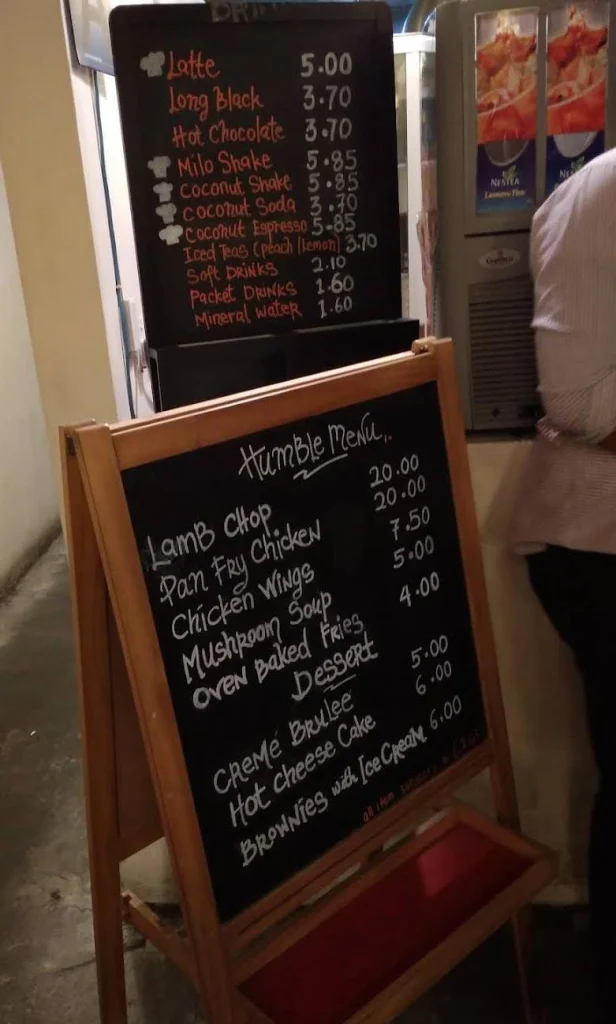 DRINKS
Latte 5.00
Long Black 3.70
Hot Chocolate 3.70
Milo Shake 5.85
Coconut Shake 5.85
Coconut Soda 3.70
Coconut Espresso 5.85
Iced Teas (Peach/Lemon) 3.70
Soft DRINKS 2.10
Packet DRINKS 1.60
Mineral Water 1.60
NESTEA
NES
HUMBLE MENU
LAMB CHOP 20.00
Pan Fry Chicken 20.00
Chicken Wings 7.50
Mushroom Soup 5.00
OVEN BAKED FRIES 4.00
Dessert
CREMÉ BRULEE 5.00
Hot Cheese Cake 6.00
BROWNIES with Ice Cream 6.00
all item